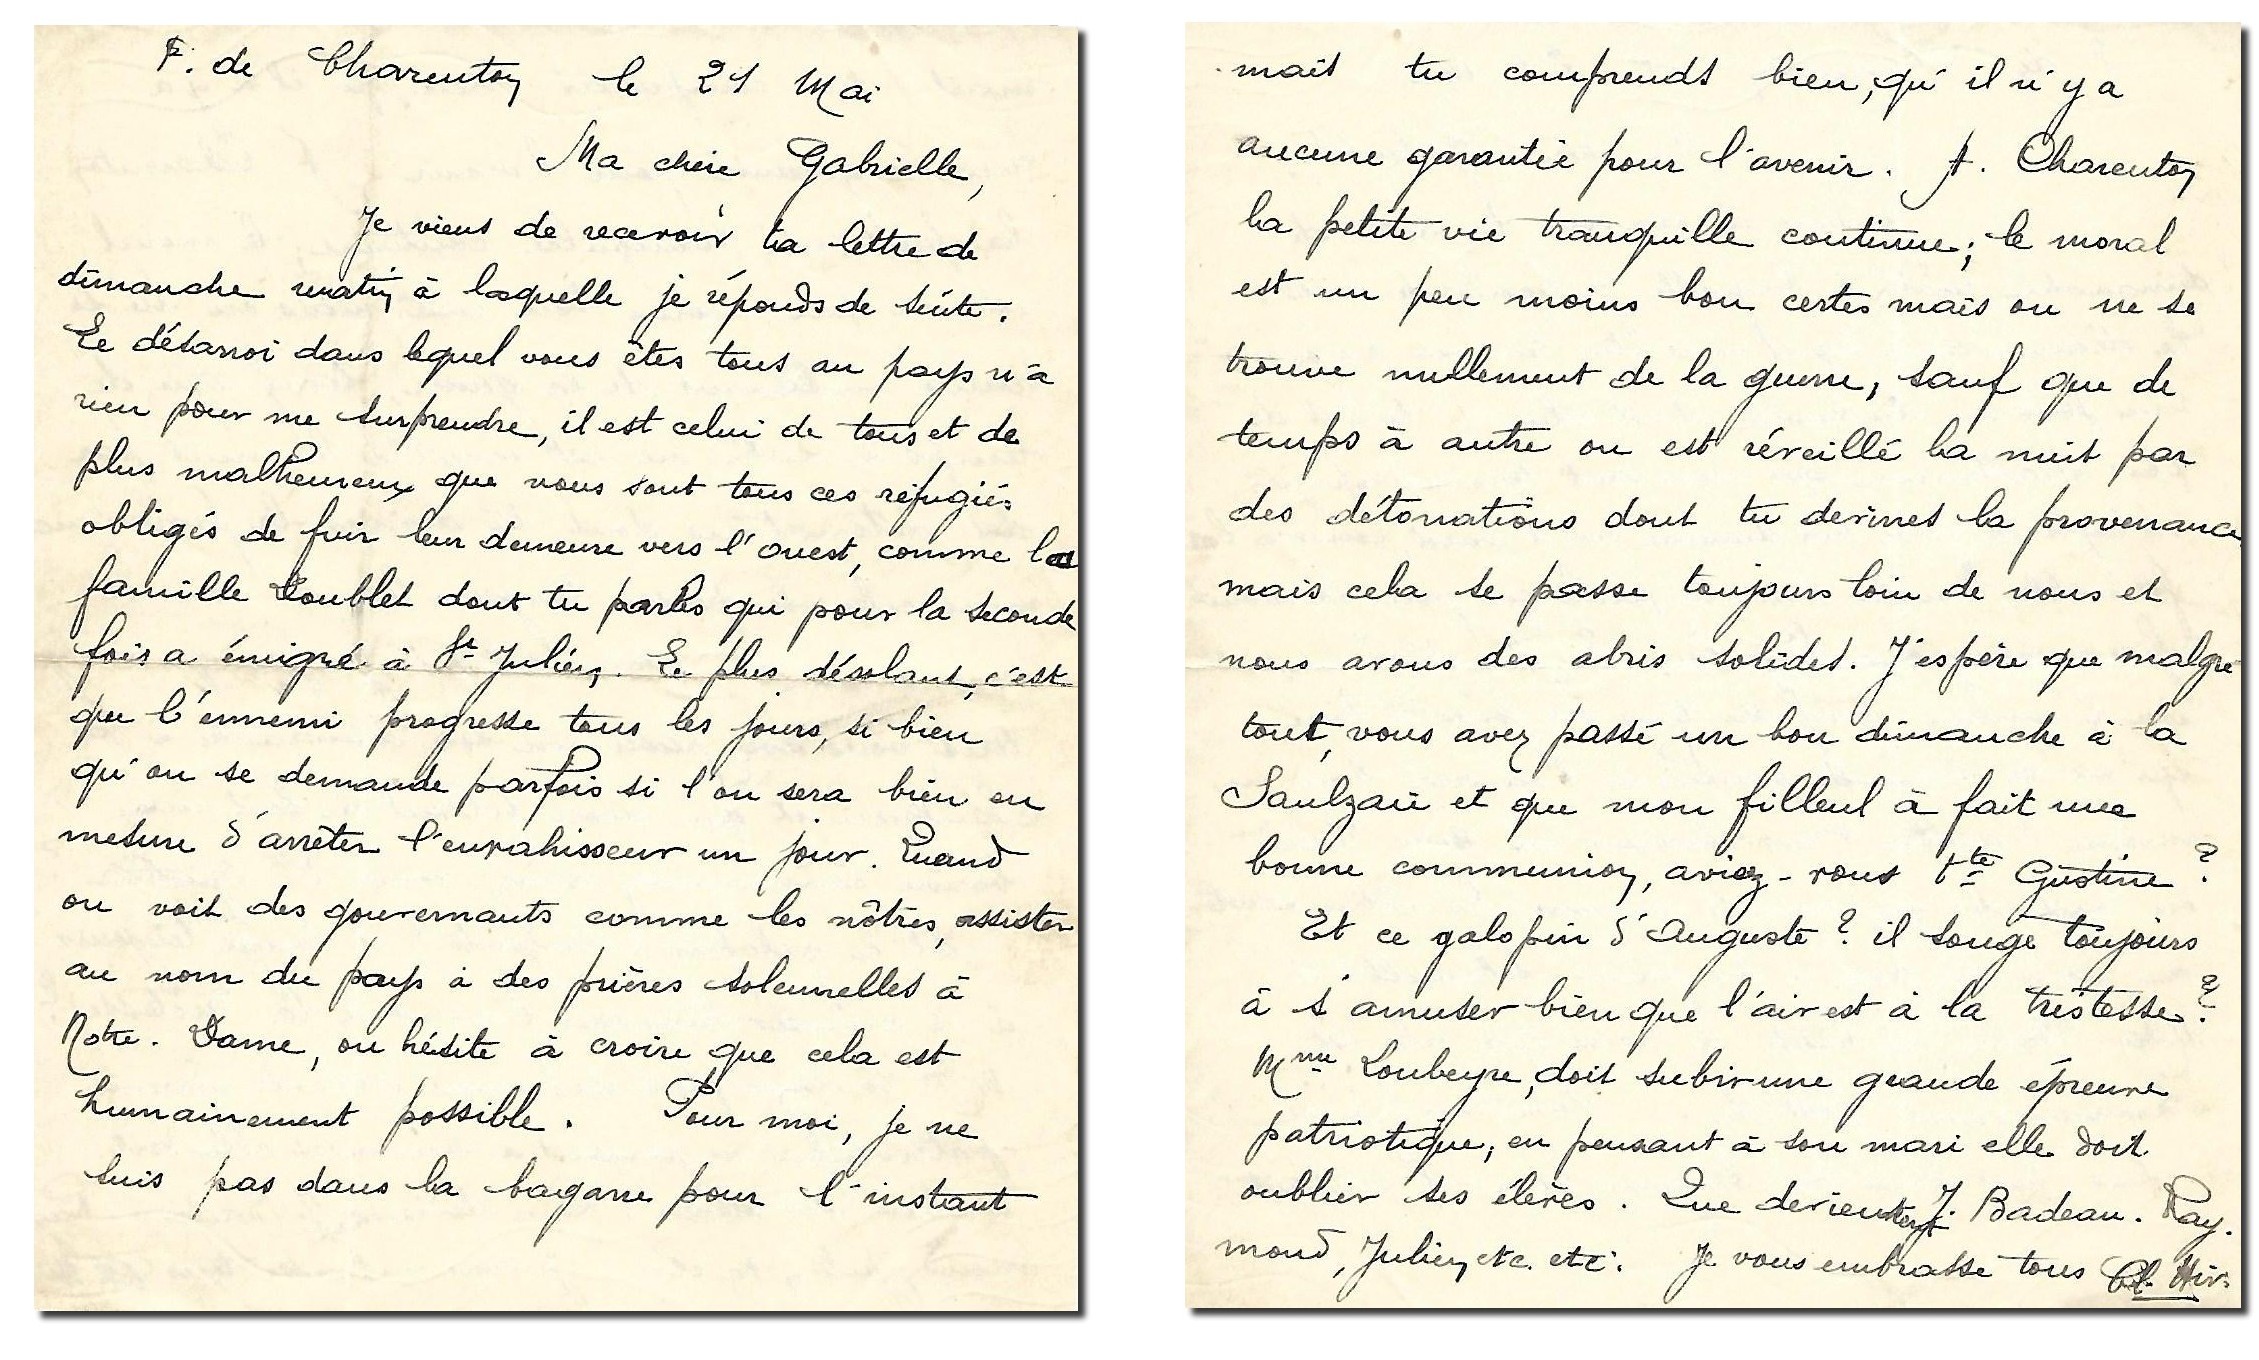 F. de Charenton le 21 Mai
Ma chère Gabrielle,
Je viens de recevoir ta lettre de
dimanche matin à laquelle je réponds de suite.
Le désarroi dans lequel vous êtes tous au pays n'a
rien pour me surprendre, il est celui de tous et de
plus malheureux que vous sont tous ces réfugiés
obligés de fuir leur demeure vers l'ouest, comme la
famille Loublet dont tu parles qui pour la seconde
fois a émigré à St Julien. Le plus désolant, c'est
que l'ennemi progresse tous les jours, si bien
qu'on se demande parfois si l'on sera bien en
mesure d'arrêter l'envahisseur un jour. Quand
on voit des gouvernants comme les nôtres, assister
au nom du pays à des prières solennelles à
Notre-Dame, on hésite à croire que cela est
humainement possible. Pour moi, je ne
suis pas dans la bagarre pour l'instant
mais tu comprends bien, qu'il n'y a
aucune garantie pour l'avenir. A Charenton
la petite vie tranquille continue; le moral
est un peu moins bon certes mais on ne se
trouve nullement de la guerre, sauf que de
temps à autre on est réveillé la nuit par
des détonations dont tu devines la provenance
mais cela se passe toujours loin de nous et
nous avons des abris solides. J'espère que malgré
tout, vous avez passé un bon dimanche à la
Saulzaie et que mon filleul à fait une
bonne communion, aviez-vous tte Gustine ?
Et ce galopin d'Auguste ? il songe toujours
à s'amuser bien que l'air est à la tristesse ?
Mme Loubeyre, doit subir une grande épreuve
patriotique, en pensant à son mari elle doit
oublier ses élèves. Que deviennent J. Badeau. Ray-
mond, Julien etc. etc. Je vous embrasse tous